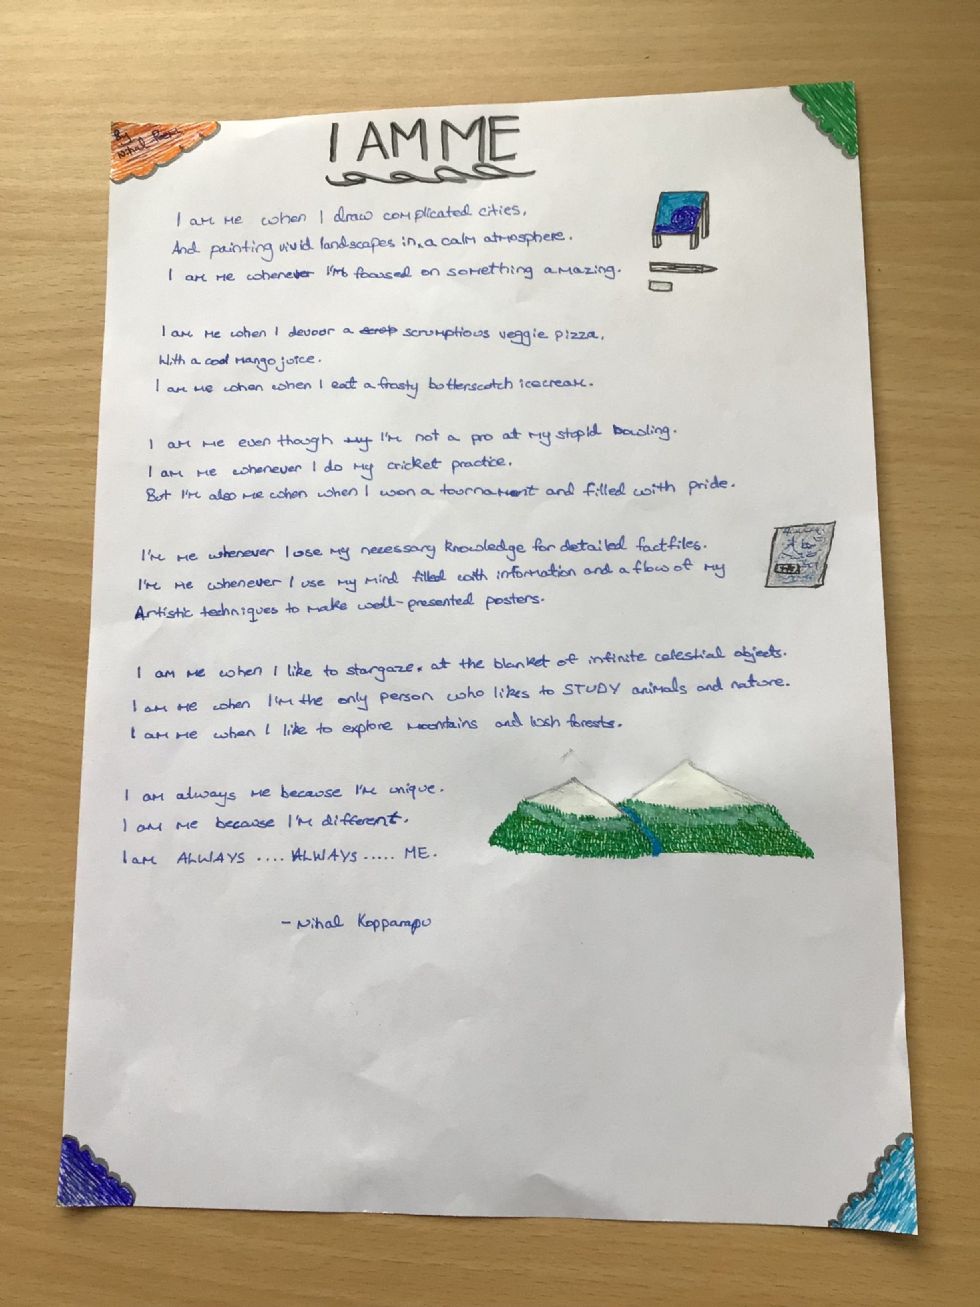 By
Nihal
I AM ME
I am me when I draw complicated cities,
And painting vivid landscapes in a calm atmosphere.
I am me whenever I'm focused on something amazing.
I am me when I devour a scrumptious veggie pizza,
With a cool mango juice.
I am me when when I eat a frosty butterscotch icecream.
I am me even though my I'm not a pro at my stupid bowling.
I am me whenever I do my cricket practice.
But I'm also me when when I won a tournament and filled with pride.
I'm me whenever I use my necessary knowledge for detailed factfiles.
I'm me whenever I use my mind filled with information and a flow of my
Artistic techniques to make well-presented posters.
I am me when I like to stargaze at the blanket of infinite celestial objects.
I am me when I'm the only person who likes to STUDY animals and nature.
I am me when I like to explore mountains and lush forests.
I am always me because I'm unique.
I am me because I'm different.
I am ALWAYS .... ALWAYS ..... ME.
- Nihal Kopparapu